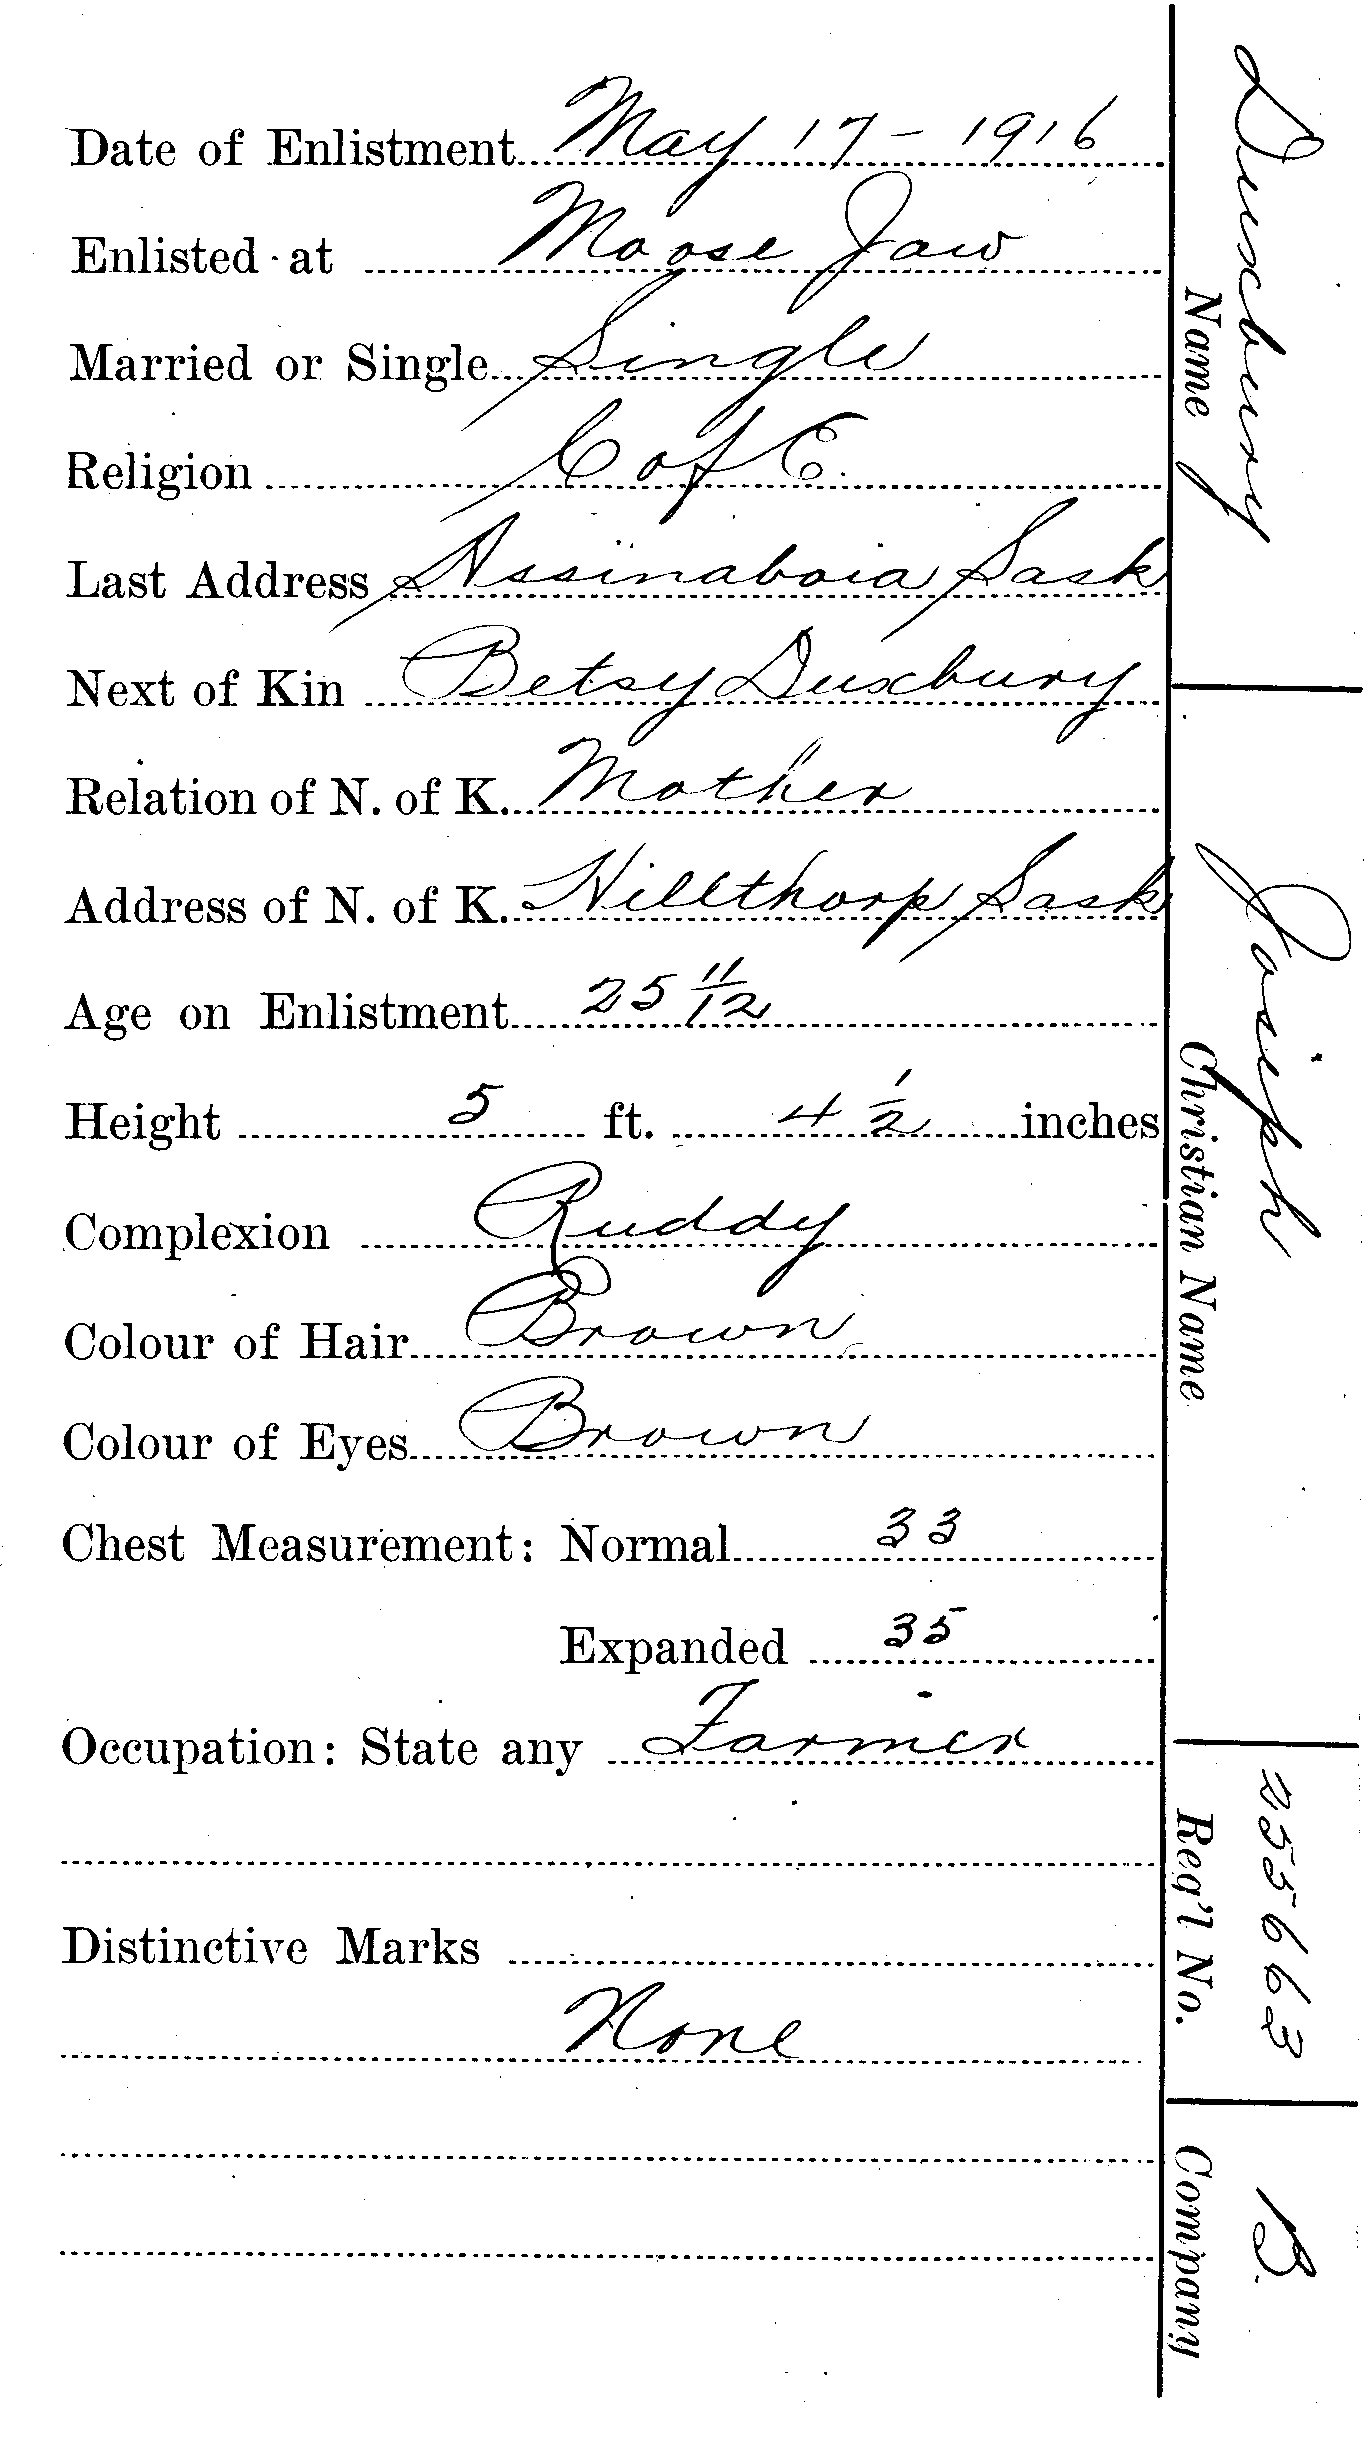 Date of Enlistment May 17 - 1916
Enlisted at Moose Jaw
Married or Single Single
Religion C of E.
Last Address Assinaboia Sask
Next of Kin Betsy Duxbury
Relation of N. of K. Mother
Address of N. of K. Hillthorp Sask
Age on Enlistment 25 11/12
Height 5 ft. 4 1/2 inches
Complexion Ruddy
Colour of Hair Brown
Colour of Eyes Brown
Chest Measurement: Normal 33
Expanded 35
Occupation: State any Farmer
Distinctive Marks
None
Duxbury
Name
Joseph
Christian Name
255663
Reg'l No.
B.
Company